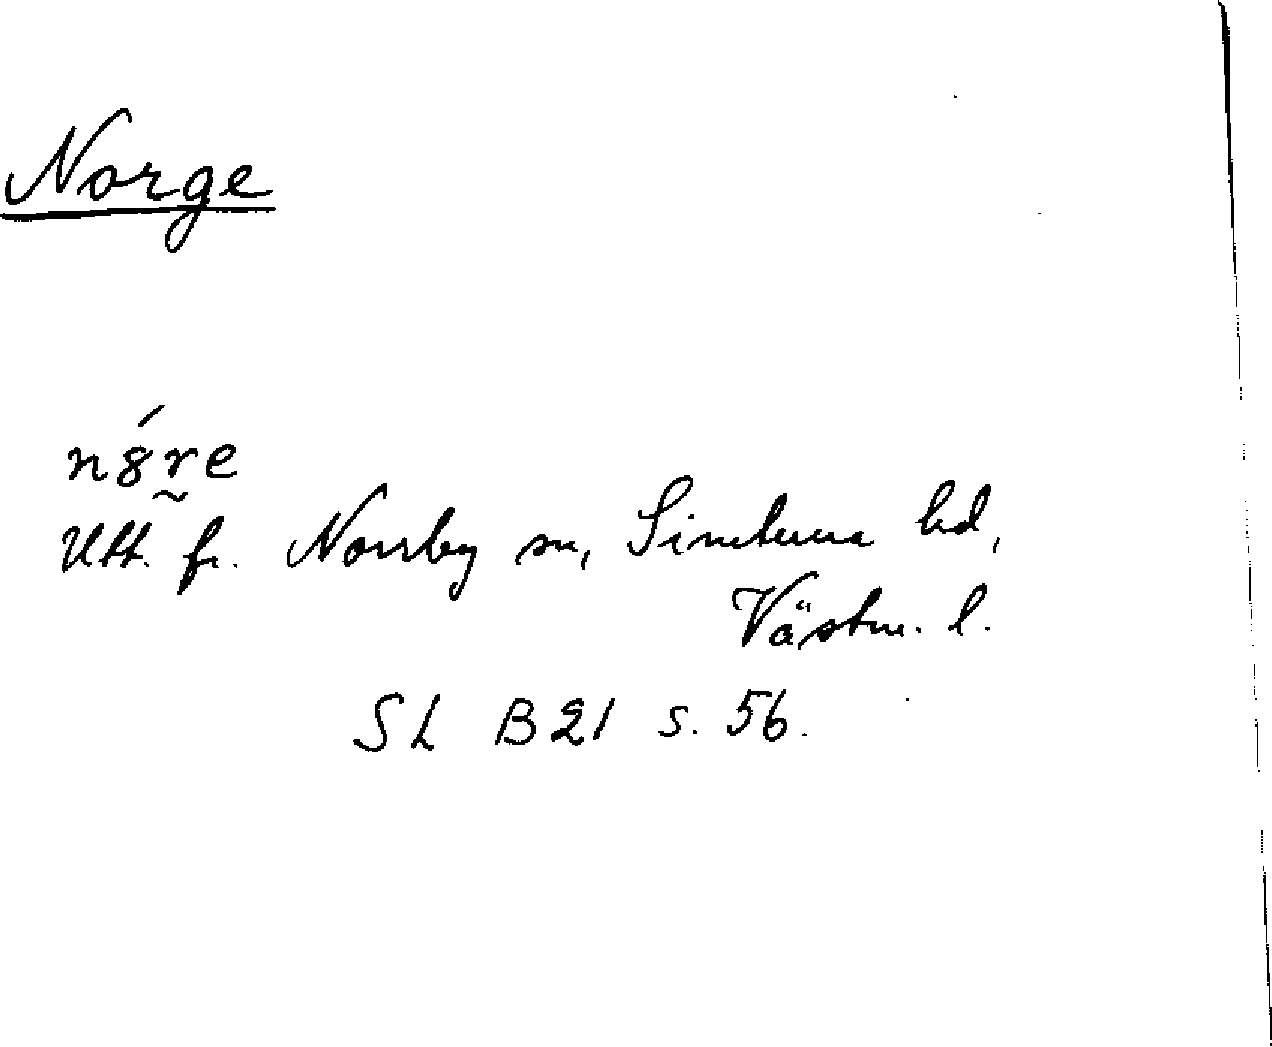 Norge
n8́r̰e
Utt. fr. Norrby sn, Simtuna hd,
Västm. l.
SL B21 s. 56.